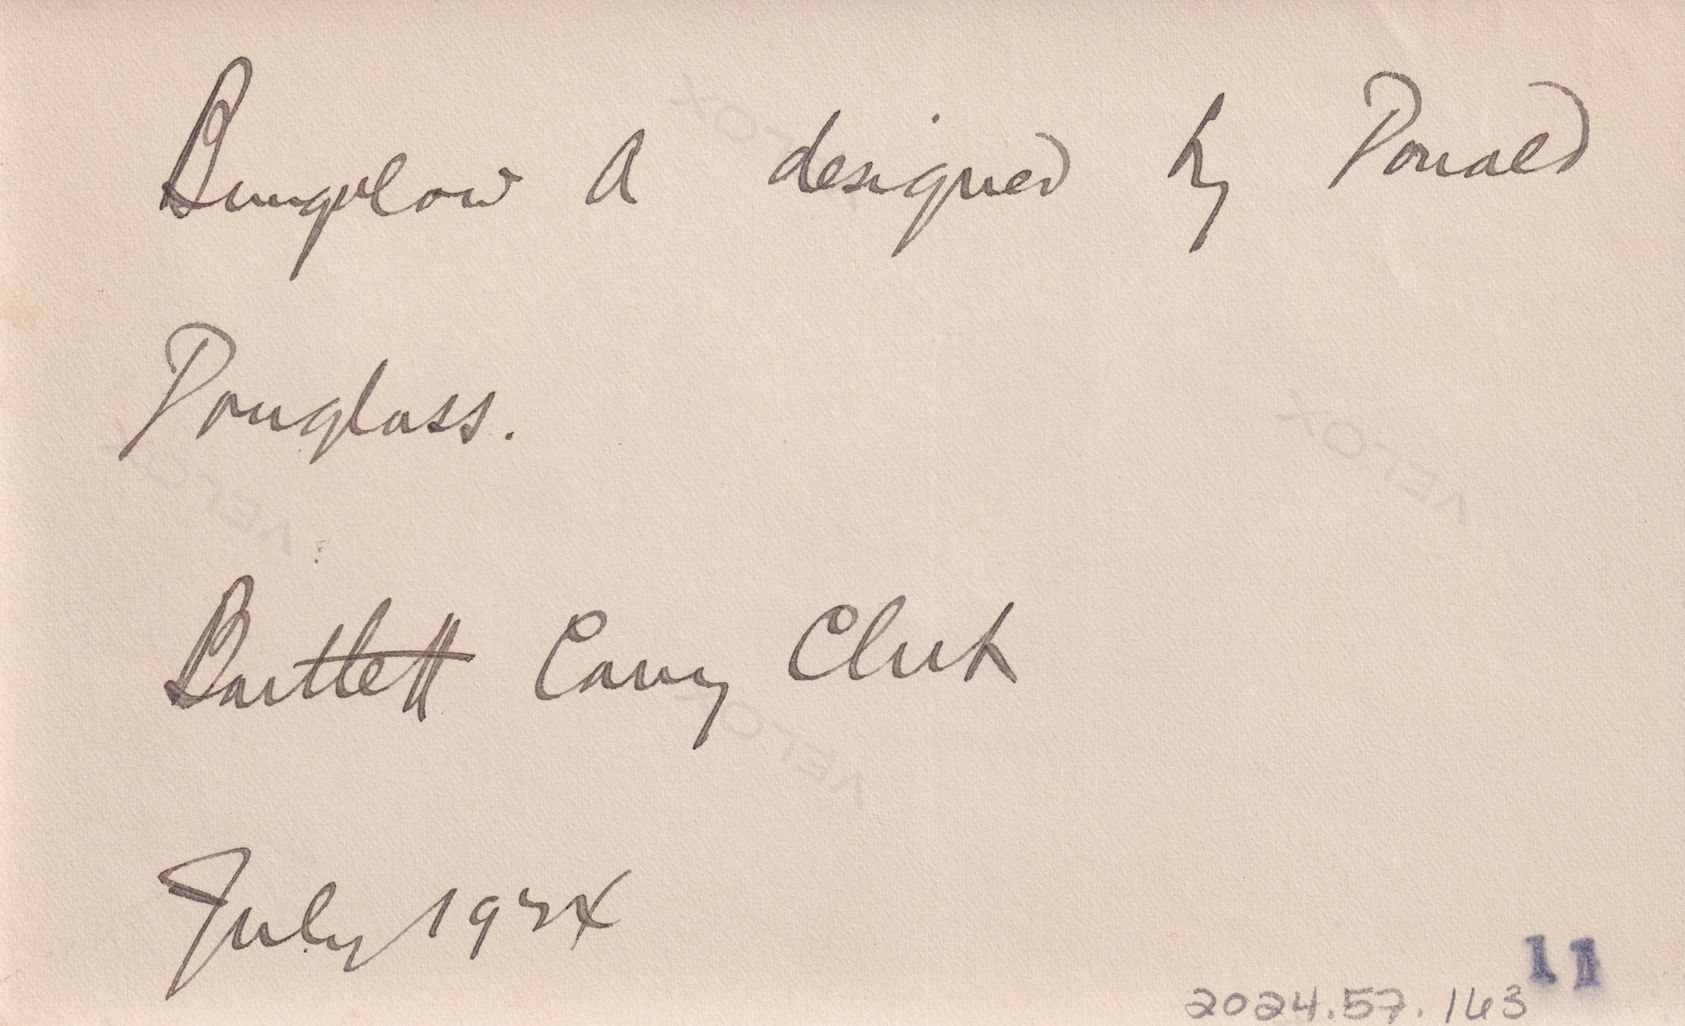 Bungalow A designed by Donald
Douglass.
Bartlett Carry Club
July 1924
11
2024.57.163
VELOX
VELOX
VELOX
VELOX